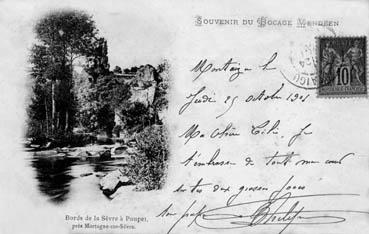 SOUVENIR DU BOCAGE VENDÉEN
Montaigu le
Jeudi 25 octobre 1901
Ma chère Lili, Je
t'embrasse de tout mon cœur
sur tes deux grosses joues
ton papa
10
Bords de la Sèvre à Poupet,
près Mortagne-sur-Sèvre.